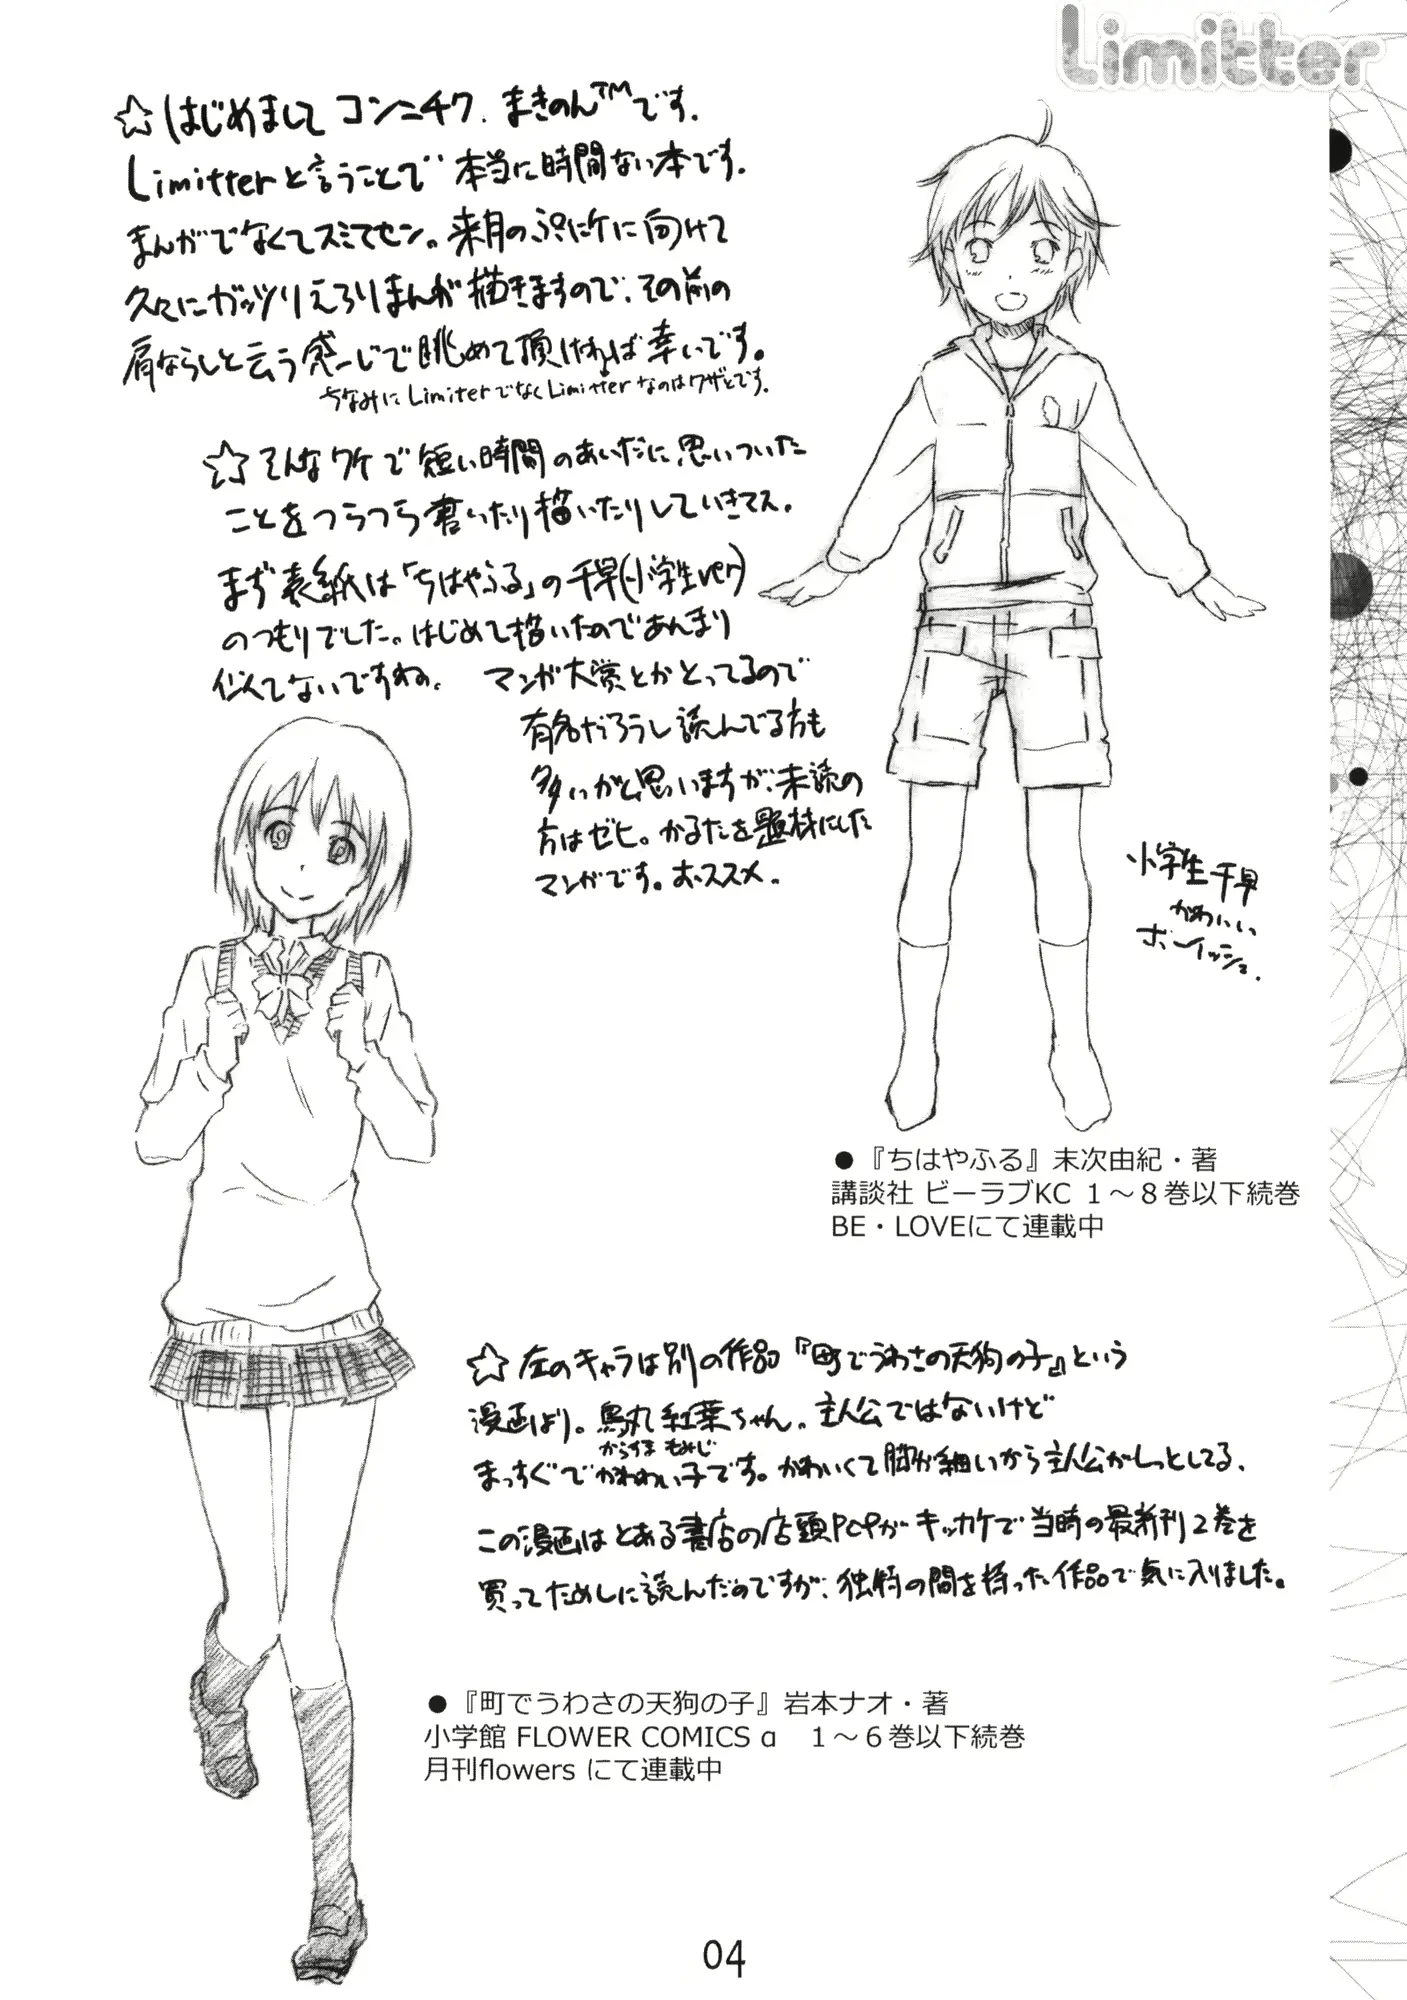 Limitter
☆はじめまして コンニチワ、まきのん™です。
Limitterと言うことで 本当に時間ない本です。
まんがでなくてスミマセン。来月のぷにケに向けて
久々にガッツリえろりまんが描きますので、その前の
肩ならしと云う感ーじで眺めて頂ければ幸いです。
ちなみに LimiterでなくLimitterなのはワザとです。
☆そんなワケで短い時間のあいだに思いついた
ことをつらつら書いたり描いたりしていきマス。
まず表紙は「ちはやふる」の千早(小学生ver)
のつもりでした。はじめて描いたのであんまり
似てないですね。 マンガ大賞とかとってるので
有名だろうし読んでる方も
多いかと思いますが、未読の
方はゼヒ。かるたを題材にした
マンガです。おススメ。
小学生千早
かわいい
ボーイッシュ。
●『ちはやふる』末次由紀・著
講談社 ビーラブKC １～８巻以下続巻
BE・LOVEにて連載中
☆左のキャラは別の作品『町でうわさの天狗の子』という
漫画より。烏丸紅葉ちゃん。主人公ではないけど
からすま もみじ
まっすぐでかわいい子です。かわいくて脚が細いから主人公がしっとしてる。
この漫画はとある書店の店頭POPがキッカケで当時の最新刊2巻を
買ってためしに読んだのですが、独特の間を持った作品で気に入りました。
●『町でうわさの天狗の子』岩本ナオ・著
小学館 FLOWER COMICS α　１～６巻以下続巻
月刊flowers にて連載中
04